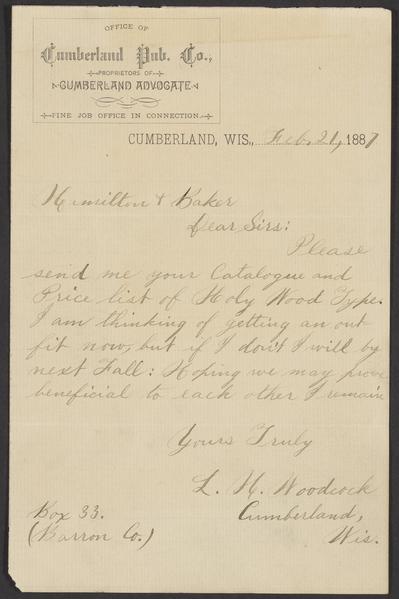 OFFICE OF
Cumberland Pub. Co.,
PROPRIETORS OF
CUMBERLAND ADVOCATE
FINE JOB OFFICE IN CONNECTION.
CUMBERLAND, WIS., Feb. 21, 1887
Hamilton & Baker
Dear Sirs:
Please
send me your Catalogue and
Price list of Holy Wood Type.
I am thinking of getting an out-
fit now, but if I don't I will by
next Fall: Hoping we may prove
beneficial to each other I remain
Yours Truly
L. H. Woodcock
Box 33. Cumberland,
(Barron Co.) Wis.